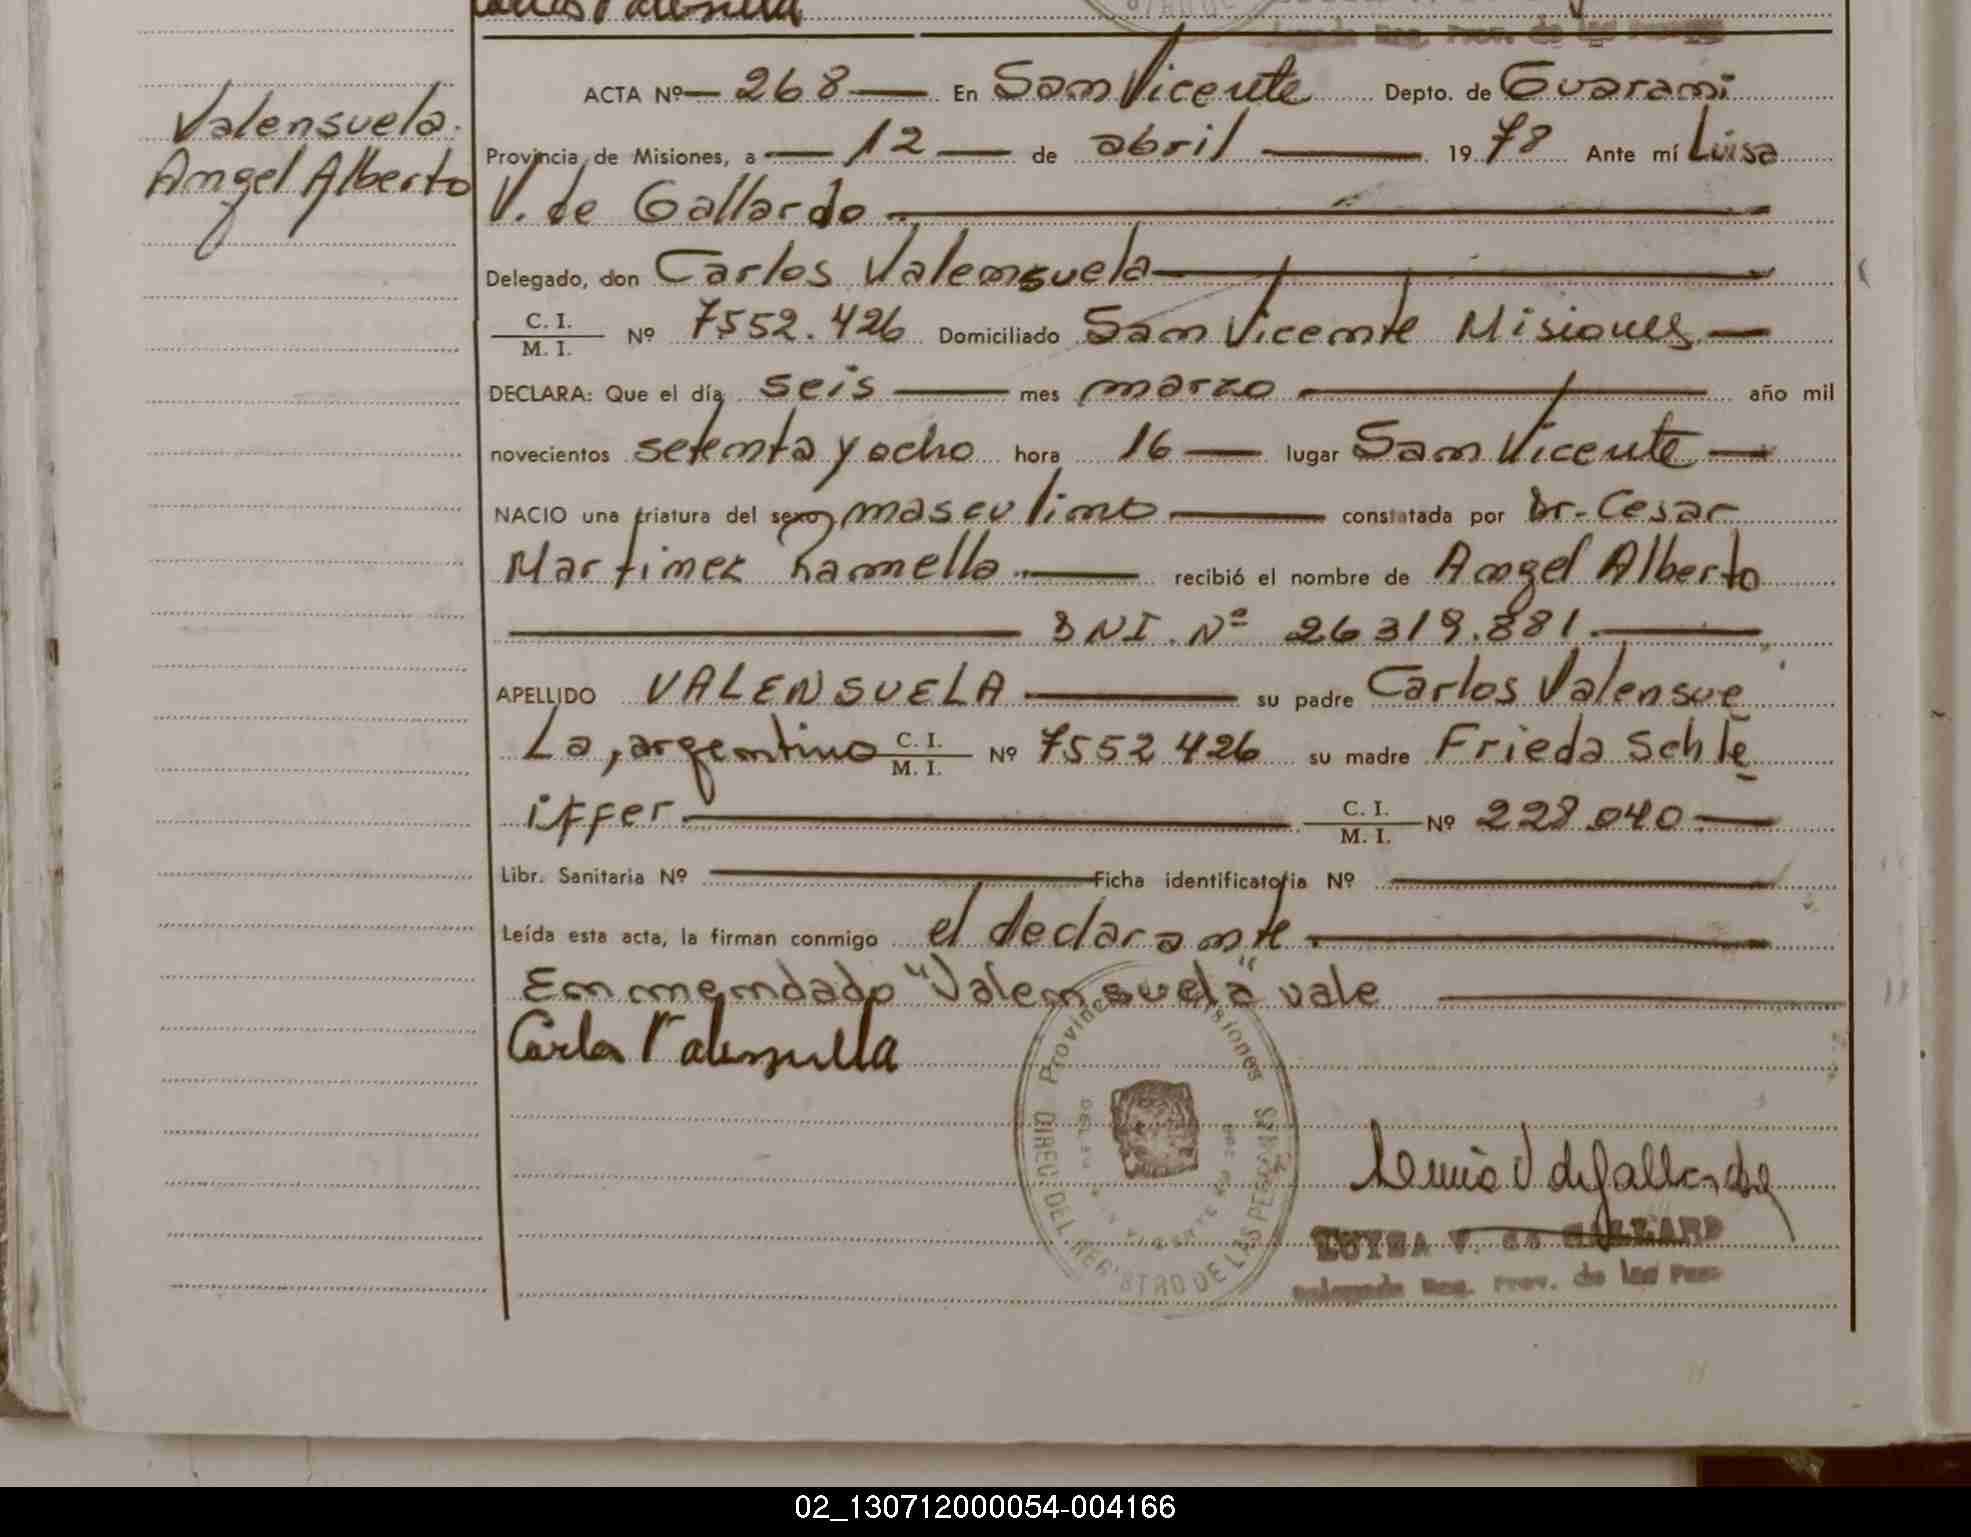 Carlos Valensuela
Valensuela
Angel Alberto
ACTA Nº 268 En San Vicente Depto. de Guarani
Provincia de Misiones, a 12 de abril 1978 Ante mí Luisa
V. de Gallardo
Delegado, don Carlos Valensuela
C. I.
M. I. Nº 7552.426 Domiciliado San Vicente Misiones
DECLARA: Que el día seis mes marzo año mil
novecientos setenta y ocho hora 16 lugar San Vicente
NACIO una criatura del sexo masculino constatada por Dr. Cesar
Martinez recibió el nombre de Angel Alberto
DNI. Nº 26319.881.
APELLIDO VALENSUELA su padre Carlos Valensue
la, argentino C. I. M. I. Nº 7552426 su madre Frieda Schle
iffer C. I. M. I. Nº 228.040
Libr. Sanitaria Nº Ficha identificatoria Nº
Leída esta acta, la firman conmigo el declarante
Enmendado "Valensuela" vale
Carlos Valensuela
Provincia Misiones
DIREC. DEL REGISTRO DE LAS PERSONAS
V de Gallardo
LUISA V. de GALLARD
Delegada Reg. Prov. de las Pers
02_130712000054-004166